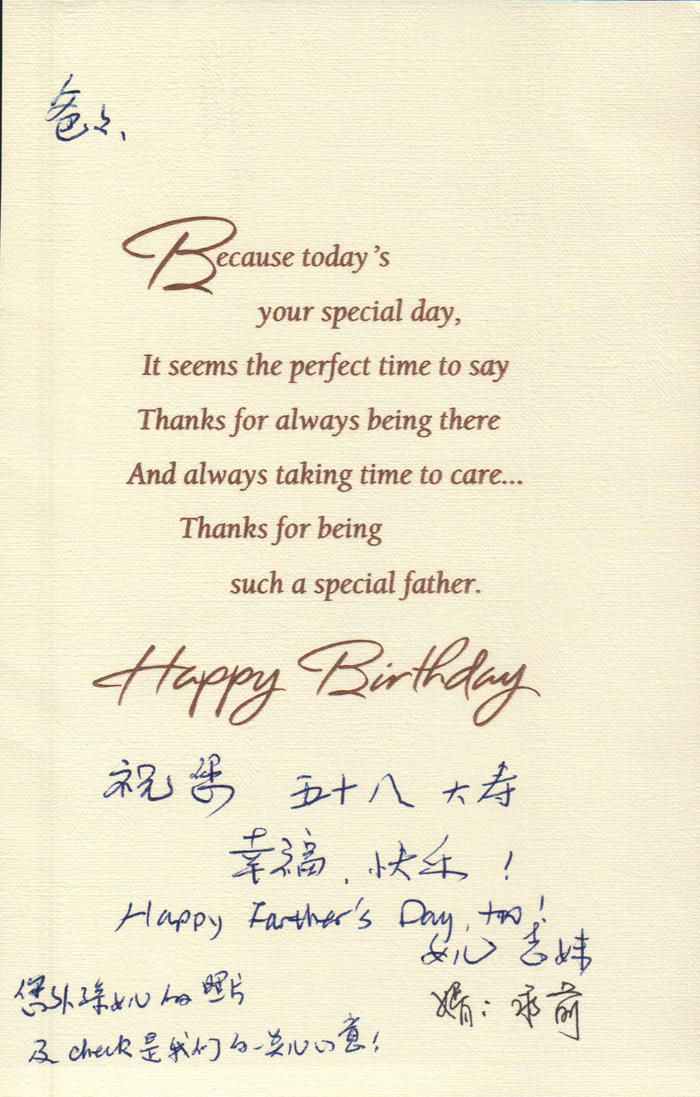 爸爸、
Because today's
your special day,
It seems the perfect time to say
Thanks for always being there
And always taking time to care...
Thanks for being
such a special father.
Happy Birthday
祝您 五十八 大寿
幸福、快乐！
Happy Farther's Day, too!
女儿 志妹
婿：承前
您外孙女儿的照片
及check是我们的一点儿心意！